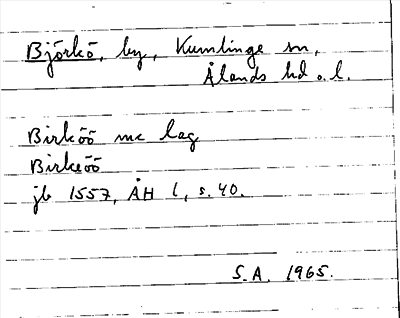 Björkö, by, Kumlinge sn,
Ålands hd o. l.
Birköö mc lag
Birkeöö
jb 1557, ÅH 1, s. 40.
S.A. 1965.